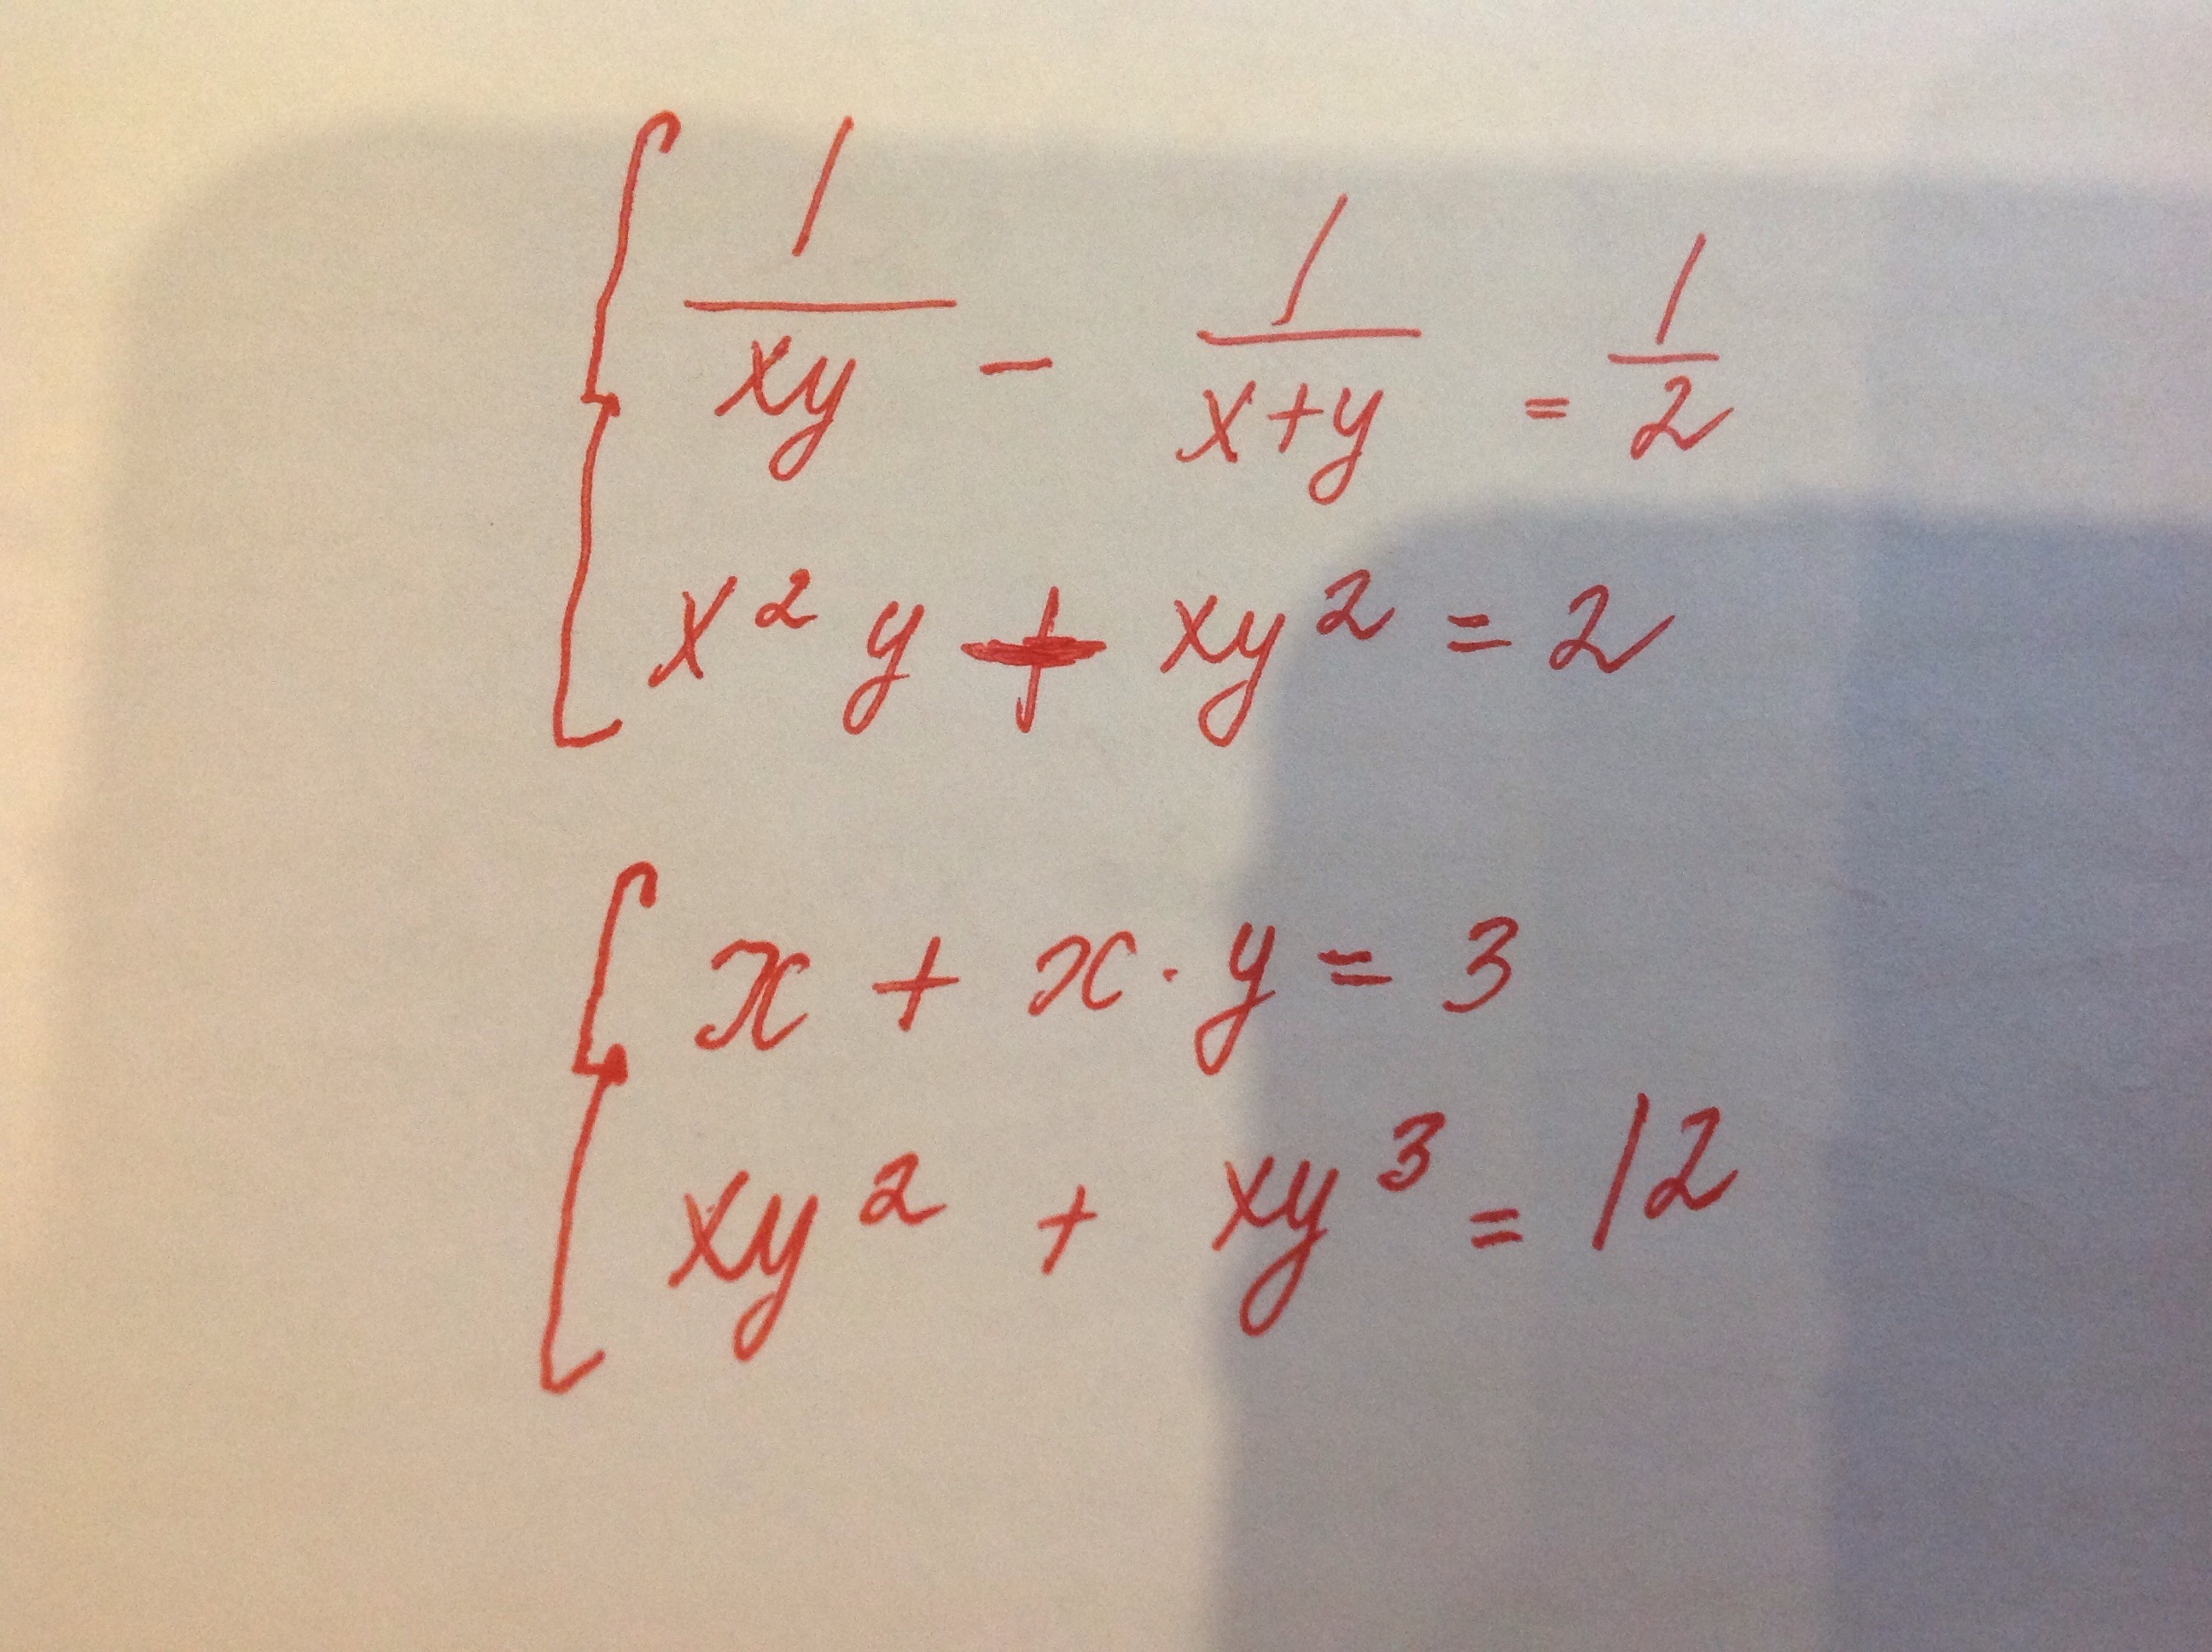 1/xy - 1/x+y = 1/2
x² y + xy² = 2
x + x · y = 3
xy² + xy³ = 12